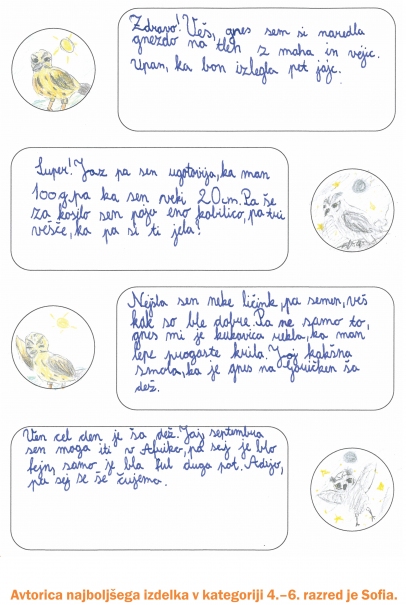 Zdravo! Veš, gnes sem si naredla
gnezdo na tleh z maha in vejic.
Upan, ka bon izlegla pet jajc.
Super! Jaz pa sen ugotovija, ka man
100 g, pa ka sen velki 20 cm. Pa še
za kosilo sen poja eno kobilico, pa tri
vešče, ka pa si ti jela?
Nejsla sen neke ličink, pa semen, veš
kak so ble dobre. Pa ne samo to,
gnes mi je kukavica rekla, ka man
lepe progaste krila. Joj kakšna
smola, ka je gnes na Goričken ša
dež.
Ven cel den je ša dež. Jaj, septembra
sen moga iti v Afriko, pa sej je blo
fejn, samo je bla ful duga pot. Adijo,
pa sej se še čujemo.
Avtorica najboljšega izdelka v kategoriji 4.–6. razred je Sofia.